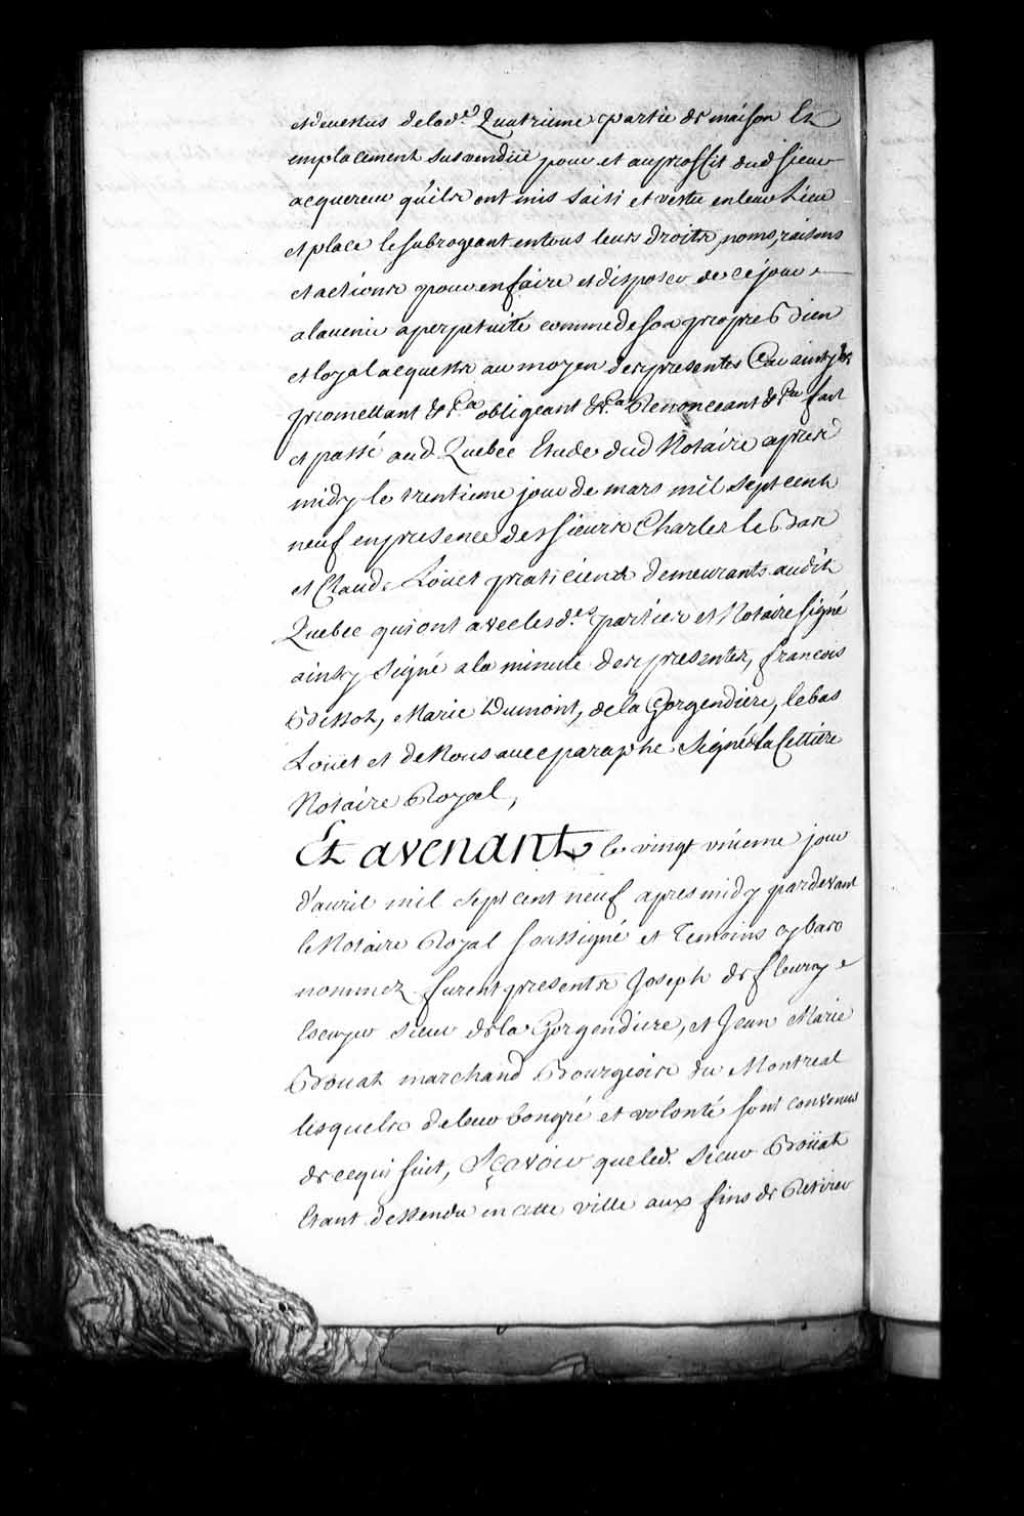 et devestus de lad.e Quatrieme partie de maison Et
emplacement susvendüe pour et au proffit dud sieur
acquereur qu'ils ont mis saisi et vestu en leur Lieu
et place le subrogeant en tous leurs droits, noms, raisons
et actions pour en faire et disposer de ce jour
a lavenir a perpetuité comme de son propre bien
et loyal acquests au moyen des presentes Car ainsy &c.
promettant &c.a obligeant &c.a Renonceant &c.a fait
et passé aud. Quebec Etude dud Notaire apres
midy le trentieme jour de mars mil sept cent
neuf en presence des sieurs Charles le Bas
et Claud. Loüet praticiens demeurants audit
Quebec qui ont avec lesd.es parties et Notaire signé
ainsy signé a la minute des presentes, francois
Bissot, Marie Dumont, de la Gorgendiere, lebas
Loüet et de Nous avec paraphe Signé La Cettiere
Notaire Royal,
Et avenant le vingt unieme jour
d'avril mil sept cent neuf apres midy pardevant
le Notaire Royal soussigné et Temoins cy bas
nommez furent presents Joseph de fleury
Escuyer sieur de la Gorgendiere, et Jean Marie
Boüat marchand Bourgeois du Montreal
lesquels de leur bon gré et volonté sont convenus
de ce qui suit, Sçavoir que led. sieur Boüat
Etant dessendu en cette ville aux fins de Retirer